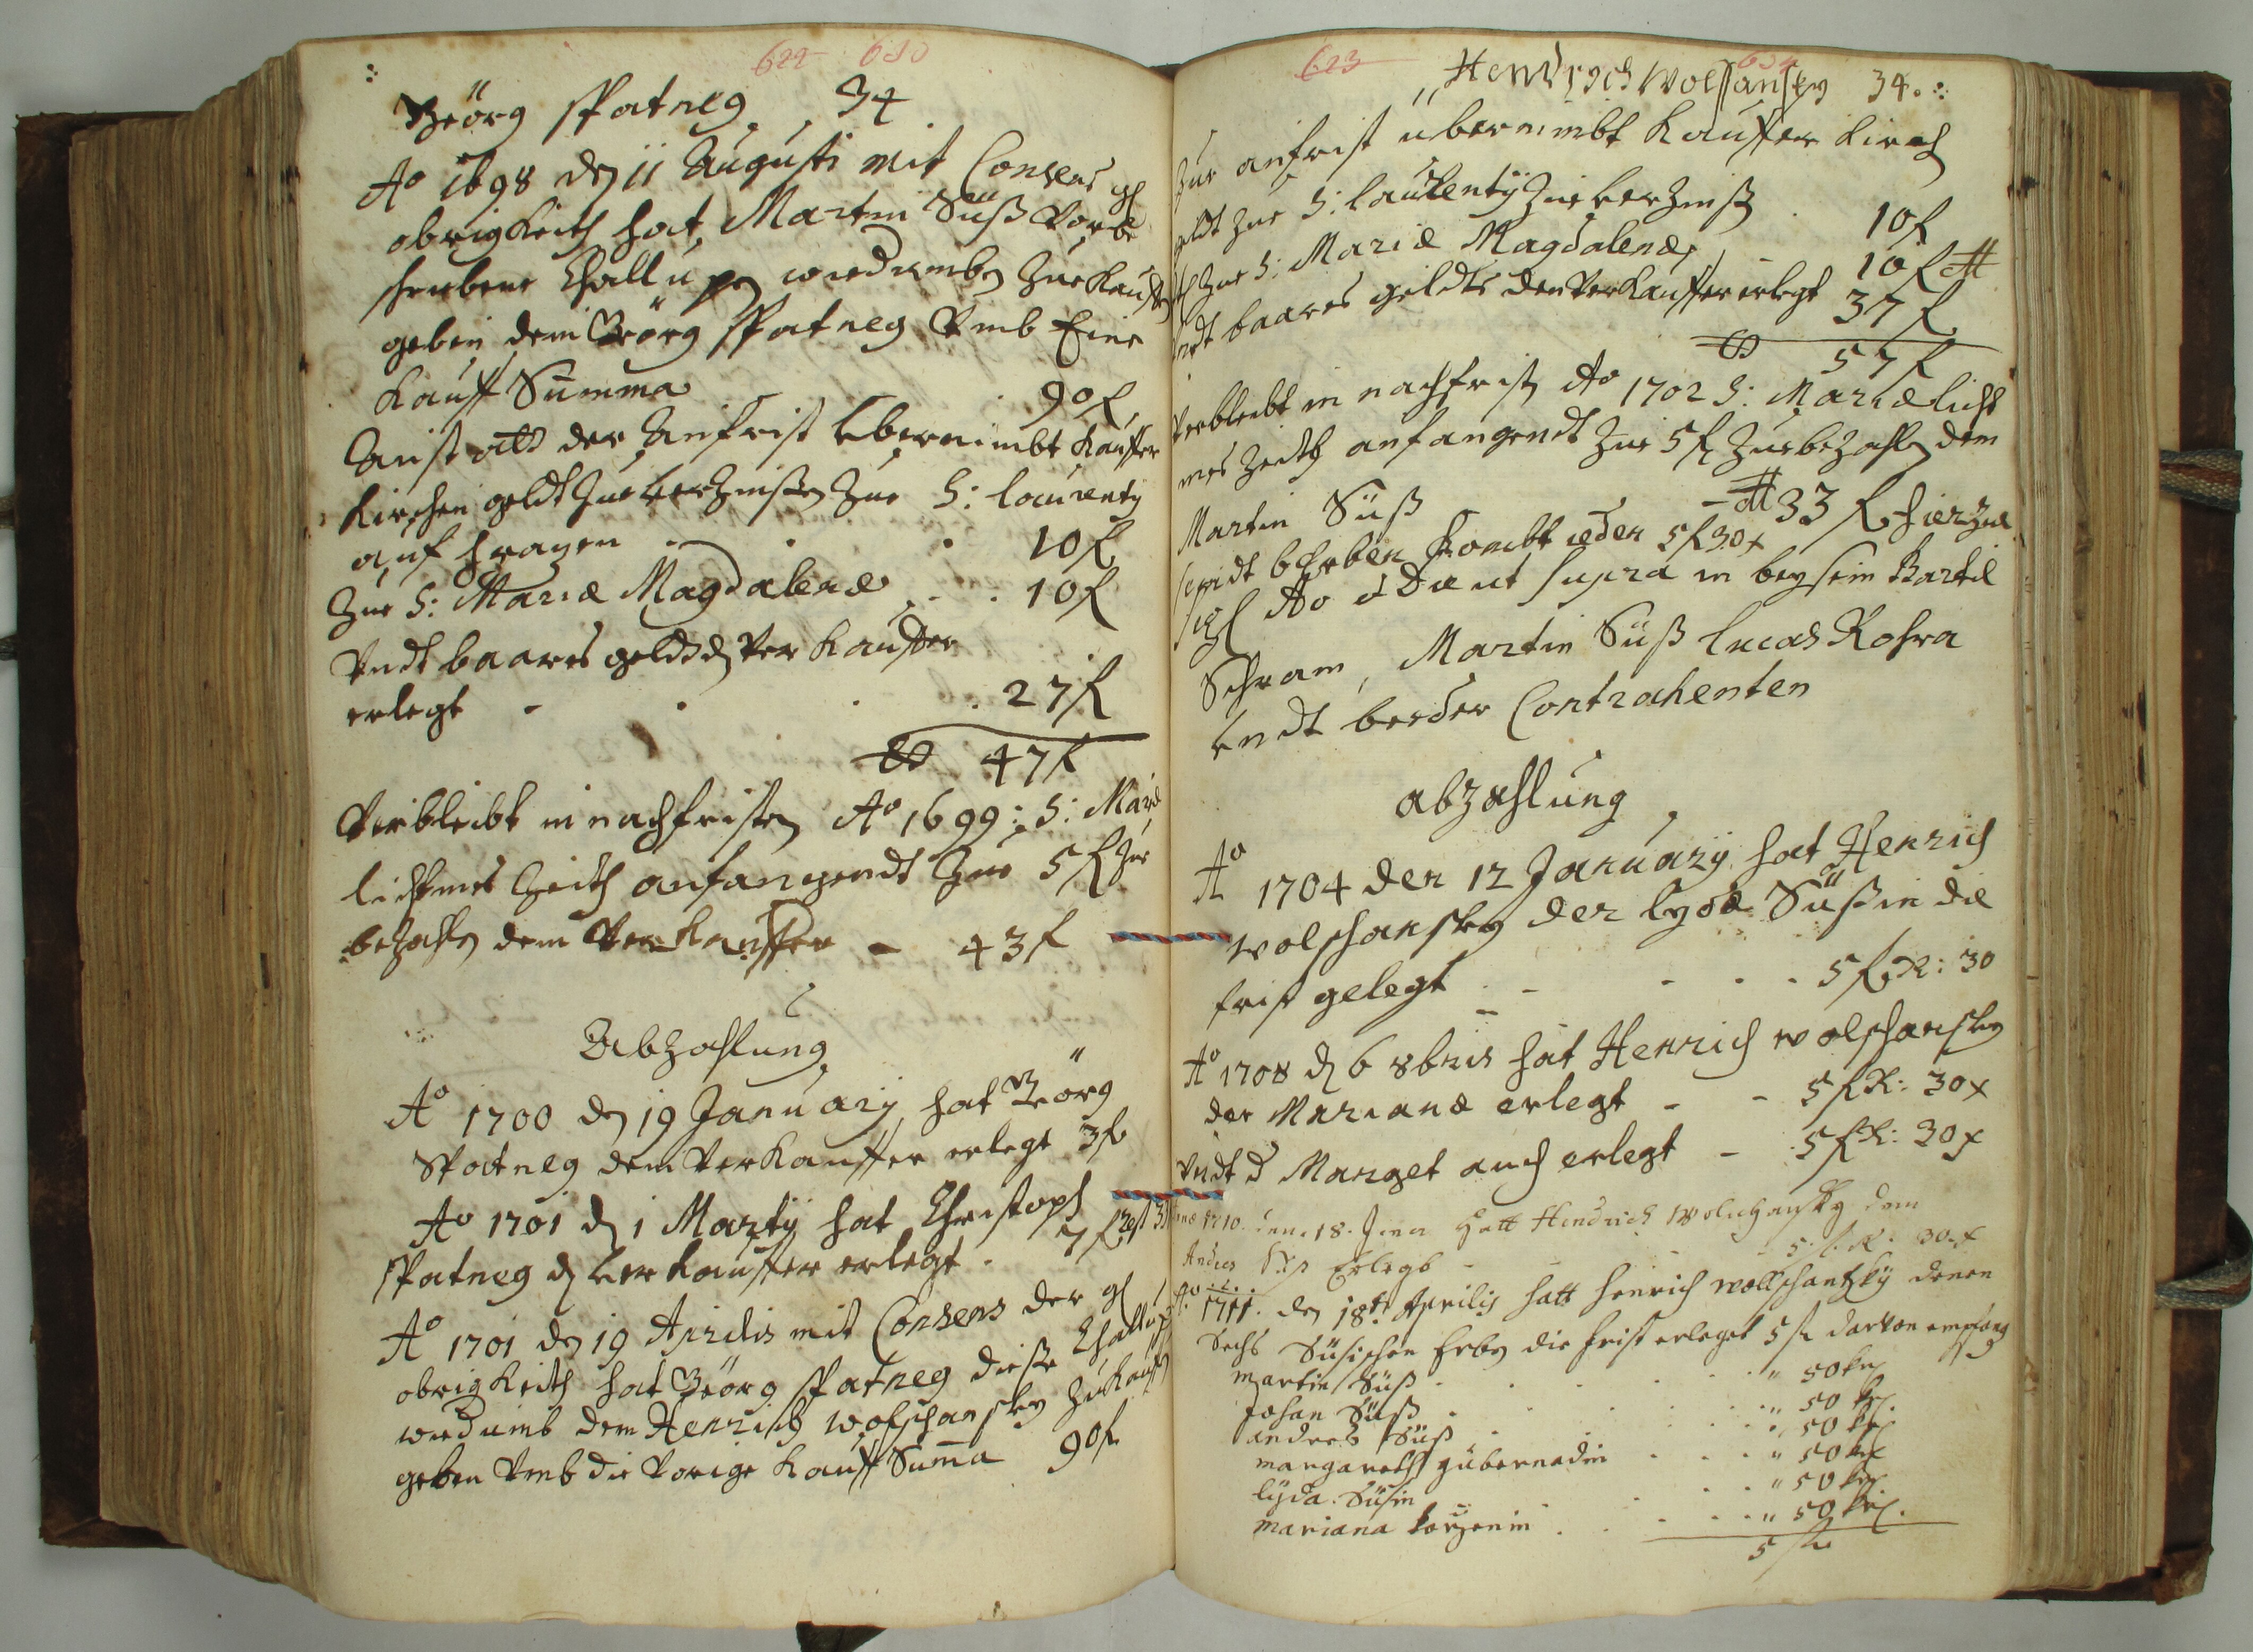 622 630
Geörg Spatneg 34
Ao 1698 den 11 Augusti mit Consens gl
obrigkeith hat Martin Süß vorbe
schribene Challupen wiedumben zue kauffen
geben dem Geörg Spatneg umb Eine
Kauff Summa 90 f
Anstatt der Anfrist übernimbt Kauffer
Kirchengeldt zue verzinßen zur S: Laurenty
auf fragen 10 f
Zur S: Mariæ Magdalenæ 10 f
Undt baares geldt dem Verkauffer
erlegt 27 f
47 f
Verbleibt in nachfristen Ao 1699: S: Mariæ
lichtmes Zeith anfangendt zue 5 f zue
bezahlen dem Verkauffer - 43 f
Abzahlung
Ao 1700 den 19 January hat Geörg
Spatneg dem Verkauffer erlegt 3 f
Ao 1701 den 1 Marty hat Christoph
Spatneg den Verkauffer erlegt 7 f
Ao 1701 den 19 Aprilis mit Consens der gl
obrigkeith hat Geörg Spatneg diese Challup
wiedumb dem Henrich Wolschansky zu kauffen
geben umb die vorige Kauff Suma 90 f
623
Hendrych Wolschansky 34
Zur anfrist übernimbt Kauffer Kirch
geldt zur S: Laurentÿ zue verzinßen 10 f
zur S: Mariæ Magdalenæ 10 f
undt baares geldts den Verkauffer erlegt 37 f
57 f
Verbleibt in nachfristen Ao 1702 S: Mariæ licht
mes Zeith anfangendt zue 5 f zue bezahlen dem
Martin Süß - 33 f hierzue
seindt 6 Erben kombt ieden 5 f 30 x
Ao & Die ut supra in beysein Bartel
Schram, Martin Süß Lucas Kohra
undt beeder Contrahenten
Abzahlung
Ao 1704 den 12 January hat Henrich
Wolschansky der Lyda Süßin die
frist gelegt 5 f K: 30
Ao 1708 den 6 8bris hat Henrich Wolschansky
der Marianæ erlegt - 5 f K: 30 x
undt d Marget auch erlegt - 5 f K: 30 x
1710. den. 18. Jener Hatt Hendrich Wolschansky dem
Andres Süs Erlegt - 5 f. K: 30 x
Ao. 1711. den 18ten Aprilis hatt Henrich Wollschantzky denen
Sechs Süsischen Erben die frist erleget 5 fl darvon empfang
Martin Süß " 50 kr
Johan Süß " 50 kr.
Andres Süß " 50 kr
Margareth Gubernadin " 50 kr
Lyda Süsin " 50 kr
Mariana " 50 kr.
5 fl